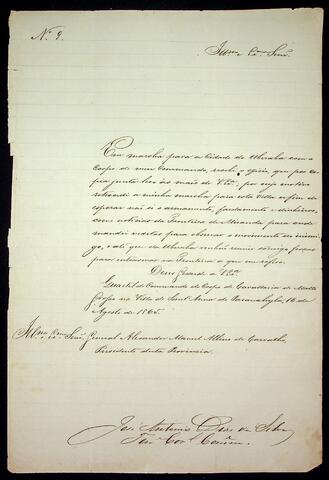 N. 9.
Illmo. e Exmo. Senr.
Em marcha para a Cidade de Uberaba com o
Corpo de meu Commando, recebi o officio, que por co-
pia junto levo ás mãos de V. Exa., por cujo motivo
retrocedi a minha marcha para esta Villa a fim de
esperar não só o armamento, fardamento e dinheiro,
com noticias da Fronteira de Miranda para onde
mandei vedetas para observar o movimento do inimi-
go, e até que de Uberaba venhão reunir comigo forças
para entrarmos na Fronteira a que me refiro.
Deus Guarde a V. Exa.
Quartel do Commando do Corpo de Cavallaria de Matto
Grosso na Villa de Sant'Anna do Paranahyba, 16 de
Agosto de 1865.
Illmo. Exmo. Senr. General Alexandre Manoel Albino de Carvalho,
Presidente desta Provincia.
José Antonio Dias da Silva
Ten. Corl. Comm.